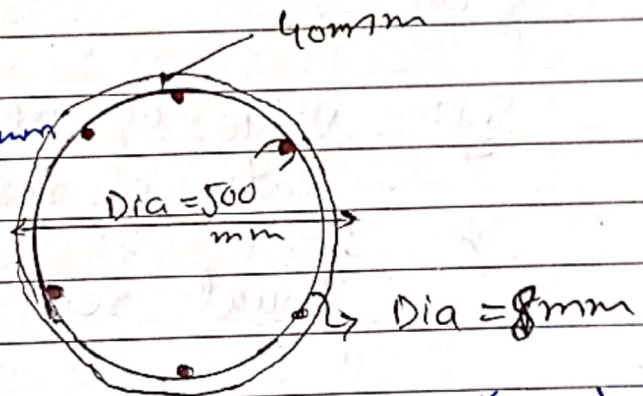 40mm
mm
Dia = 500
mm
Dia = 8mm